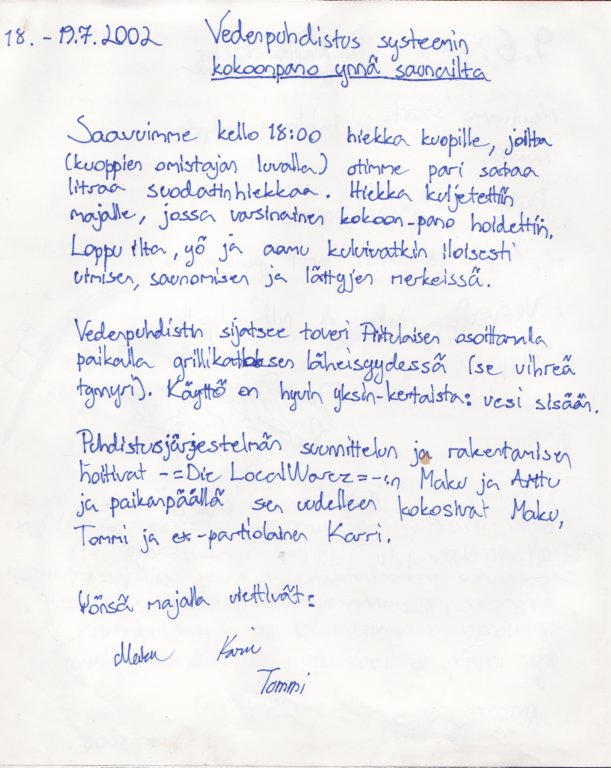 18. - 19.7.2002 Vedenpuhdistus systeemin
kokoonpano ynnä saunailta
Saavuimme kello 18:00 hiekka kuopille, joilta
(kuoppien omistajan luvalla) otimme pari sataa
litraa suodatinhiekkaa. Hiekka kuljetettiin
majalle, jossa varsinainen kokoon-pano hoidettiin.
Loppu ilta, yö ja aamu kuluivatkin iloisesti
uimisen, saunomisen ja lättyjen merkeissä.
Vedenpuhdistin sijaitsee toveri Piitulaisen osoittamalla
paikalla grillikatoksen läheisyydessä (se vihreä
tynnyri). Käyttö on hyvin yksin-kertaista: vesi sisään.
Puhdistusjärjestelmän suunnittelun ja rakentamisen
hoitivat -=Die LocalWarez=-:n Maku ja Arttu
ja paikanpäällä sen uudelleen kokosivat Maku,
Tommi ja ex-partiolainen Karri.
Yönsä majalla viettivät:
Maku Karri
Tommi